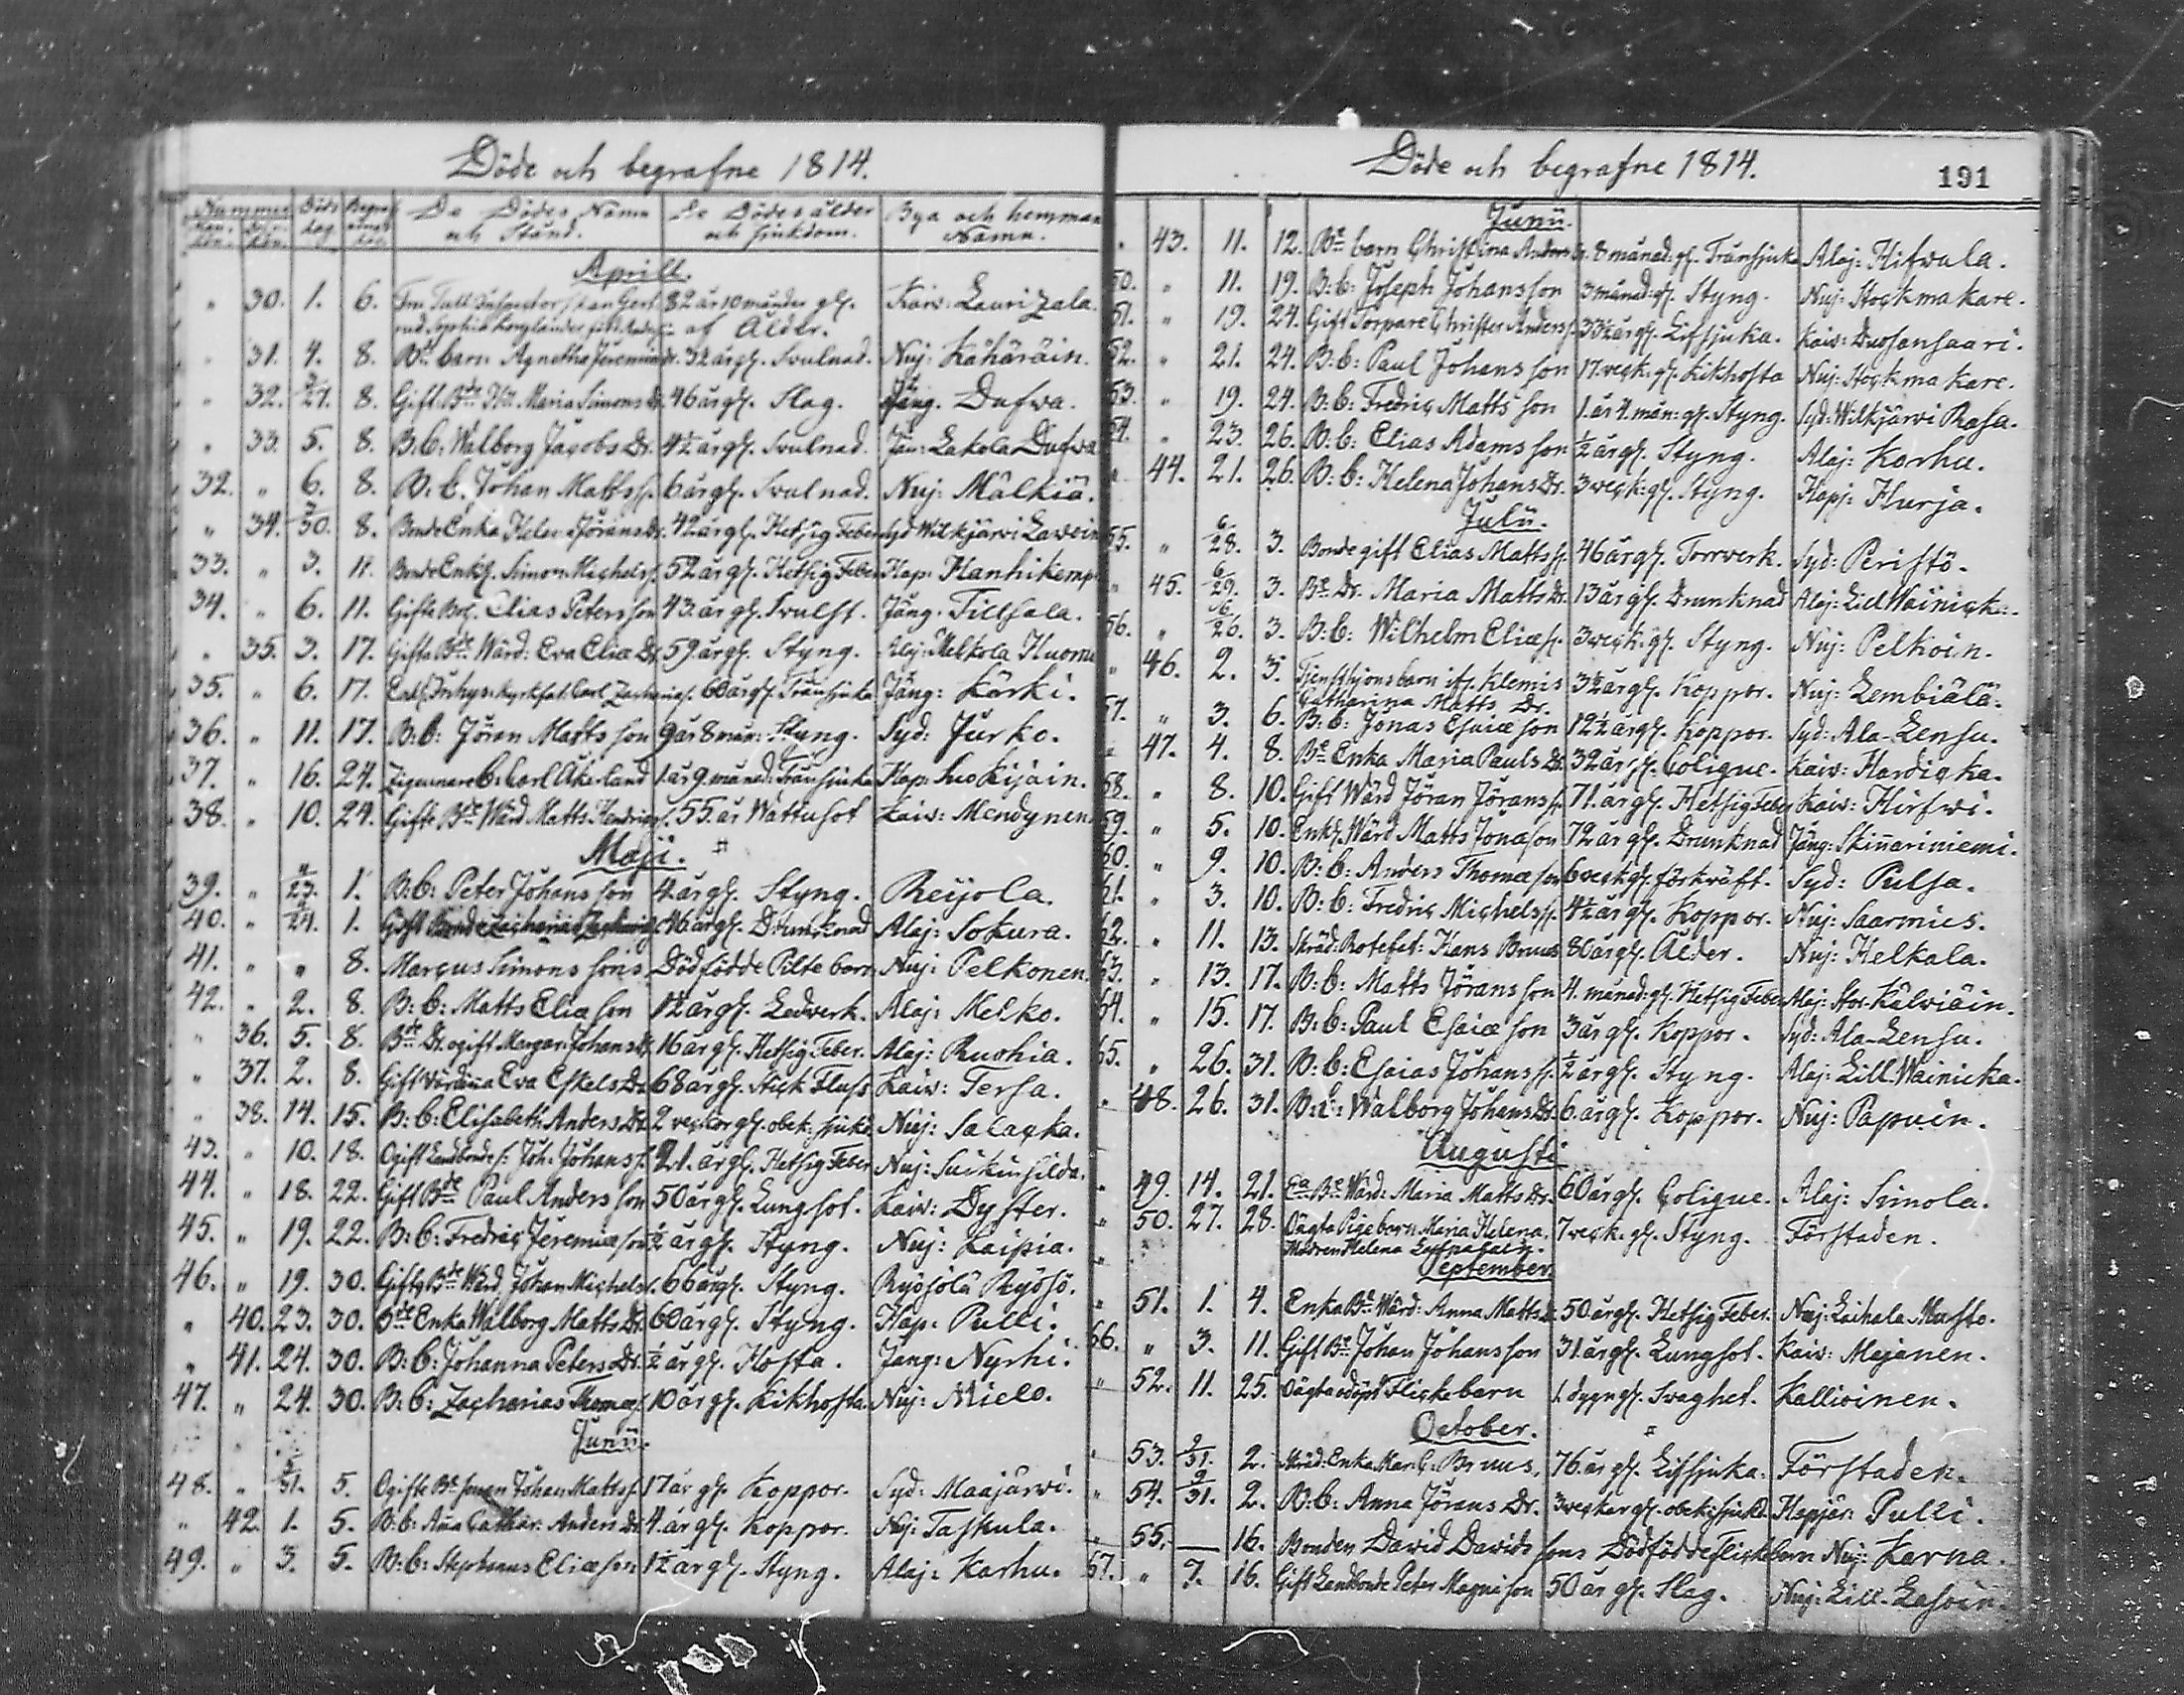 Döde och begrafne 1814.
Nummer Döds dag Begrafnings dag De Dödes Namn och Stånd. De Dödes ålder och sjukdom. Bya och hemmans Namn.
Aprill.
" 30. 1. 6. 82 år 10 månder gl. Kaiv: Laurizala.
af Ålder.
" 31. 4. 8. Bde barn Agnetha Jeremiæ Dr. 3½ år gl. Svulnad. Nuj: Kähäräin.
" 32. 3/27. 8. Gift Bde Hu. Maria Simons Dr. 46 år gl. Slag. Jäng. Dufwa.
" 33. 5. 8. B: b: Walborg Jacobs Dr. 4½ år gl. Svulnad. Jän: Lakola Dufwa
32. " 6. 8. B: b. Johan Matts s. 6 år gl. Svulnad. Nuj: Mälkiä.
" 34. 3/30. 8. Bonde Enka Helen Jörans Dr. 42 år gl. Hetsig Feber Syd Wilkjärvi Lawoin
33. " 3. 11. Bonde Enkl. Simon Michels s. 52 år gl. Hetsig Feber Hap: Hanhikemp
34. " 6. 11. Gifte Bol. Elias Petersson 43. år gl. Svulst. Jäng. Tillsala.
" 35. 3. 17. Gifta Bde Wärd: Eva Eliæ Dr. 59 år gl. Styng. Alaj: Melkola Huomo
35. " 6. 17. Carl Zacharias s. 60 år gl. Trånsjuka Jäng: Kärki.
36. " 11. 17. B: b: Jöran Matts son 9 år 8 mån: Styng. Syd: Jurko.
37. " 16. 24. Zigennare b: Carl Åkerland 1 år 9 månad: Trånsjuka Hap: Suokijäin.
38. " 10. 24. Gifte Bde Wärd Matts Hendrics s. 55. år Wattusot Kaiv: Mendynen
Maji.
39. " 4/23. 1. B: b: Peter Johansson 4. år gl. Styng. Reijola.
40. " 4/24. 1. Gift Bonde Zacharias Zachariæ s. 46 år gl. Drunknad Alaj: Sokura.
41. " " 8. Marcus Simons sons Dödfödde Pilte barn Nuj: Pelkonen.
42. " 2. 8. B: b: Matts Eliæ son 1½ år gl. Ledverk. Alaj: Melko.
" 36. 5. 8. Bde Dr. ogift Margar: Johans Dr. 16 år gl. Hetsig Feber. Alaj: Ruohia.
" 37. 2. 8. Gift Värdinna Eva Eskels Dr 68 år gl. Stick Fluss Kaiv: Tersa.
" 38. 14. 15. B: b: Elisabeth Anders Dr. 2 veckor gl. obek: sjukd. Nuj: Salacka.
43. " 10. 18. Ogift Landbonde s: Joh: Johans s. 21. år gl. Hetsig Feber Nuj: Suikinsilda.
44. " 18. 22. Gift Bde Paul Anders son 50 år gl. Lungsot. Kaiv: Dyster.
45. " 19. 22. B: b: Fredric Jeremiæ son ½ år gl. Styng. Nuj: Kaipia.
46. " 19. 30. Gifte Bde Wärd Johan Michels s. 66 år gl. Styng. Ryösölä Ryösö.
" 40. 23. 30. Bde Enka Walborg Matts Dr. 60 år gl. Styng. Hap: Pulli.
" 41. 24. 30. B: b: Johanna Peters Dr. ½ år gl. Hosta. Jäng: Nyrhi.
47. " 24. 30. B: b: Zacharias Thomæ s. 10 år gl. Kikhosta. Nuj: Mielo.
Junii.
48. " 5/31. 5. Ogifte Bde sonen Johan Matts s. 17 år gl. Koppor. Syd: Maajärwi.
" 42. 1. 5. B: b: Anna Cathar: Anders Dr 4. år gl. Koppor. Nuj: Taskula.
49. " 3. 5. B: b: Stephanus Eliæ son 1½ år gl. Styng. Alaj: Karhu.
Döde och begrafne 1814.
191
Junii.
" 43. 11. 12. Bde barn Christina Anders Dr. 8 månad: gl. Trånsjuka Alaj: Hifwala.
50. " 11. 19. B: b: Joseph Johansson 3 månad: gl. Styng. Nuj: Stockmakare.
51. " 19. 24. Gift Torpare Christer Anders s. 33½ år gl. Lifsjuka. Kaiv: Duosansaari.
52. " 21. 24. B: b: Paul Johansson 17. veck: gl. Kikhosta Nuj: Stockmakare.
53. " 19. 24. B: b: Fredric Matts son 1. år 4. mån: gl. Styng. Syd: Wilkjärvi Rasa.
54. " 23. 26. B: b: Elias Adams son ½ år gl. Styng. Alaj: Karhu.
" 44. 21. 26. B: b: Helena Johans Dr. 3 veck: gl. Styng. Hapj: Hurja.
Julii.
55. " 6/28. 3. Bonde gift Elias Matts s. 46 år gl. Torrverk. Syd: Peristö.
" 45. 6/29. 3. Bde Dr. Maria Matts Dr. 13 år gl. Drunknad Alaj: Lill Wainicka.
56. " 6/26. 3. B: b: Wilhelm Eliæ s. 3 veck: gl. Styng. Nuj: Pelkoin.
" 46. 2. 3. Tjensthjonsbarn ifr. Klemis 3½ år gl. Koppor. Nuj: Lembiälä.
Catharina Matts Dr.
57. " 3. 6. B: b: Jonas Esaiæ son 12½ år gl. Koppor. Syd: Ala-Lensu.
" 47. 4. 8. Bde Enka Maria Pauls Dr. 32 år gl. Colique. Kaiv: Hardicka.
58. " 8. 10. Gift Wärd Jöran Jörans s. 71. år gl. Hetsig Feber Kaiv: Hirfwi.
59. " 5. 10. Enkl. Wärd Matts Jonæ son 72 år gl. Drunknad Jäng: Skinnariniemi.
60. " 9. 10. B: b: Anders Thomæ son 6 veck gl. förkväft. Syd: Pulsa.
61. " 3. 10. B: b: Fredric Michels s. 4½ år gl. Koppor. Nuj: Saarmies.
62. " 11. 13. Skräd: Rotefat: Hans Bruus 80 år gl. Ålder. Nuj: Helkala.
63. " 13. 17. B: b: Matts Jörans son 4. månad: gl. Hetsig Feber Alaj: Stor-Kälviäin.
64. " 15. 17. B: b: Paul Esaiæ son 3 år gl. Koppor. Syd: Ala-Lensu.
65. " 26. 31. B: b: Esaias Johans s. ½ år gl. Styng. Alaj: Lill-Wainicka.
" 48. 26. 31. B: b: Walborg Johans Dr. 6. år gl. Koppor. Nuj: Papuin.
Augusti
" 49. 14. 21. Ea Bde Wärd: Maria Matts Dr. 60 år gl. Colique. Alaj: Simola.
" 50. 27. 28. Oägta Pigebarn Maria Helena. 7 veck. gl. Styng. Förstaden.
Modren Helena
September.
" 51. 1. 4. Enka Bde Wärd: Anna Matts Dr. 50 år gl. Hetsig Feber. Nuj: Laihala Musto.
66. " 3. 11. Gift Bde Johan Johansson 31. år gl. Lungsot. Kaiv: Majanen.
" 52. 11. 25. Oägta odöpt Flickebarn 1. dygn gl. Svaghet. Kallioinen.
October.
" 53. 9/31. 2. Skräd: Enka Mar: C: Bruus. 76. år gl. Lifsjuka. Förstaden.
" 54. 9/31. 2. B: b: Anna Jörans Dr. 3 veckor gl. obek: sjukd. Hapjär: Pulli.
" 55. — 16. Bonden David Davids sons Dödfödde Flickbarn Nuj: Karna.
67. " 7. 16. Gift Landbonde Peter Magni son 50 år gl. Slag. Nuj: Lill-Lasoin.